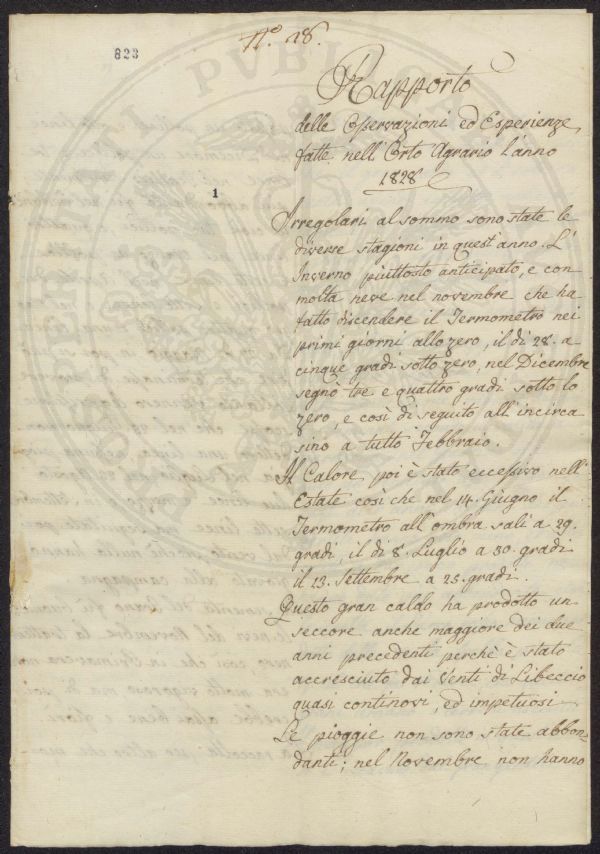 823
N.º 28.
Rapporto
delle Osservazioni ed Esperienze
fatte nell'Orto Agrario l'anno
1828
1
Irregolari al sommo sono state le
diverse stagioni in quest'anno. L'
Inverno piuttosto anticipato, e con
molta neve nel novembre che ha
fatto discendere il Termometro nei
primi giorni allo zero, il dì 28. a
cinque gradi sotto zero, nel Dicembre
segnò tre e quattro gradi sotto lo
zero, e così di seguito all'incirca
sino a tutto Febbraio.
Il Calore poi è stato eccessivo nell'
Estate così che nel 14. Giugno il
Termometro all'ombra salì a 29.
gradi, il dì 8. Luglio a 30. gradi
il 13. Settembre a 25. gradi.
Questo gran caldo ha prodotto un
seccore anche maggiore dei due
anni precedenti perchè è stato
accresciuto dai Venti di Libeccio
quasi continovi, ed impetuosi
Le pioggie non sono state abbon-
danti; nel Novembre non hanno